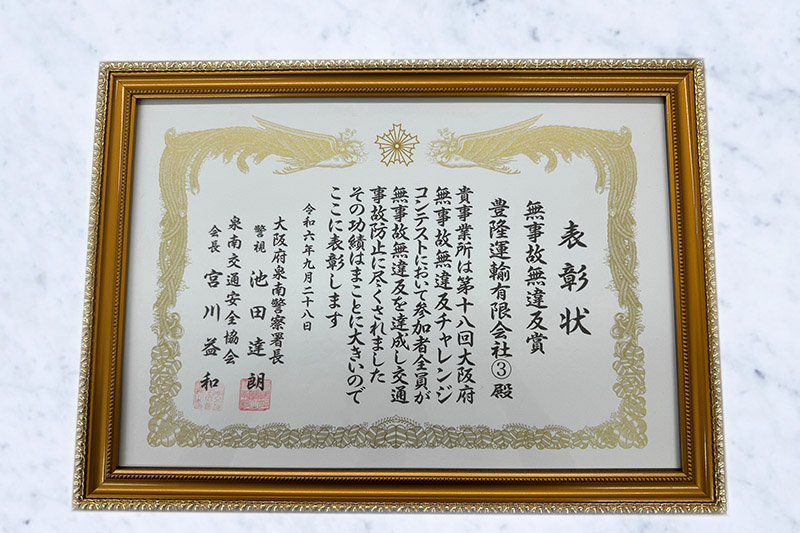 表彰状
無事故無違反賞
豊隆運輸有限会社③殿
貴事業所は第十八回大阪府
無事故無違反チャレンジ
コンテストにおいて参加者全員が
無事故無違反を達成し交通
事故防止に尽くされました
その功績はまことに大きいので
ここに表彰します
令和六年九月二十八日
大阪府泉南警察署長
警視 池田達朗
泉南交通安全協会
会長 宮川益和